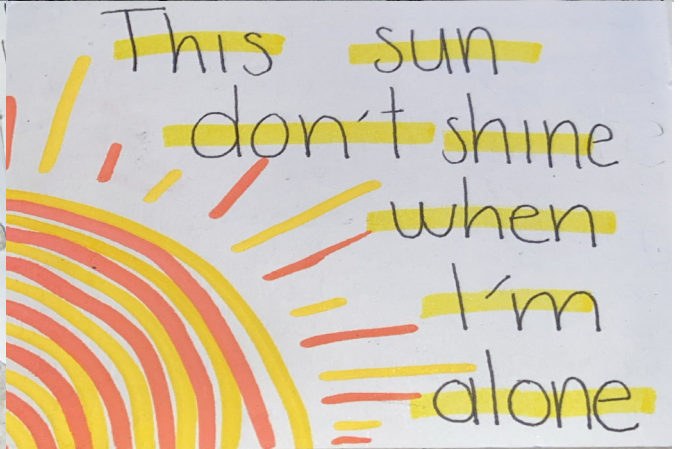 This sun
don't shine
when
I'm
alone